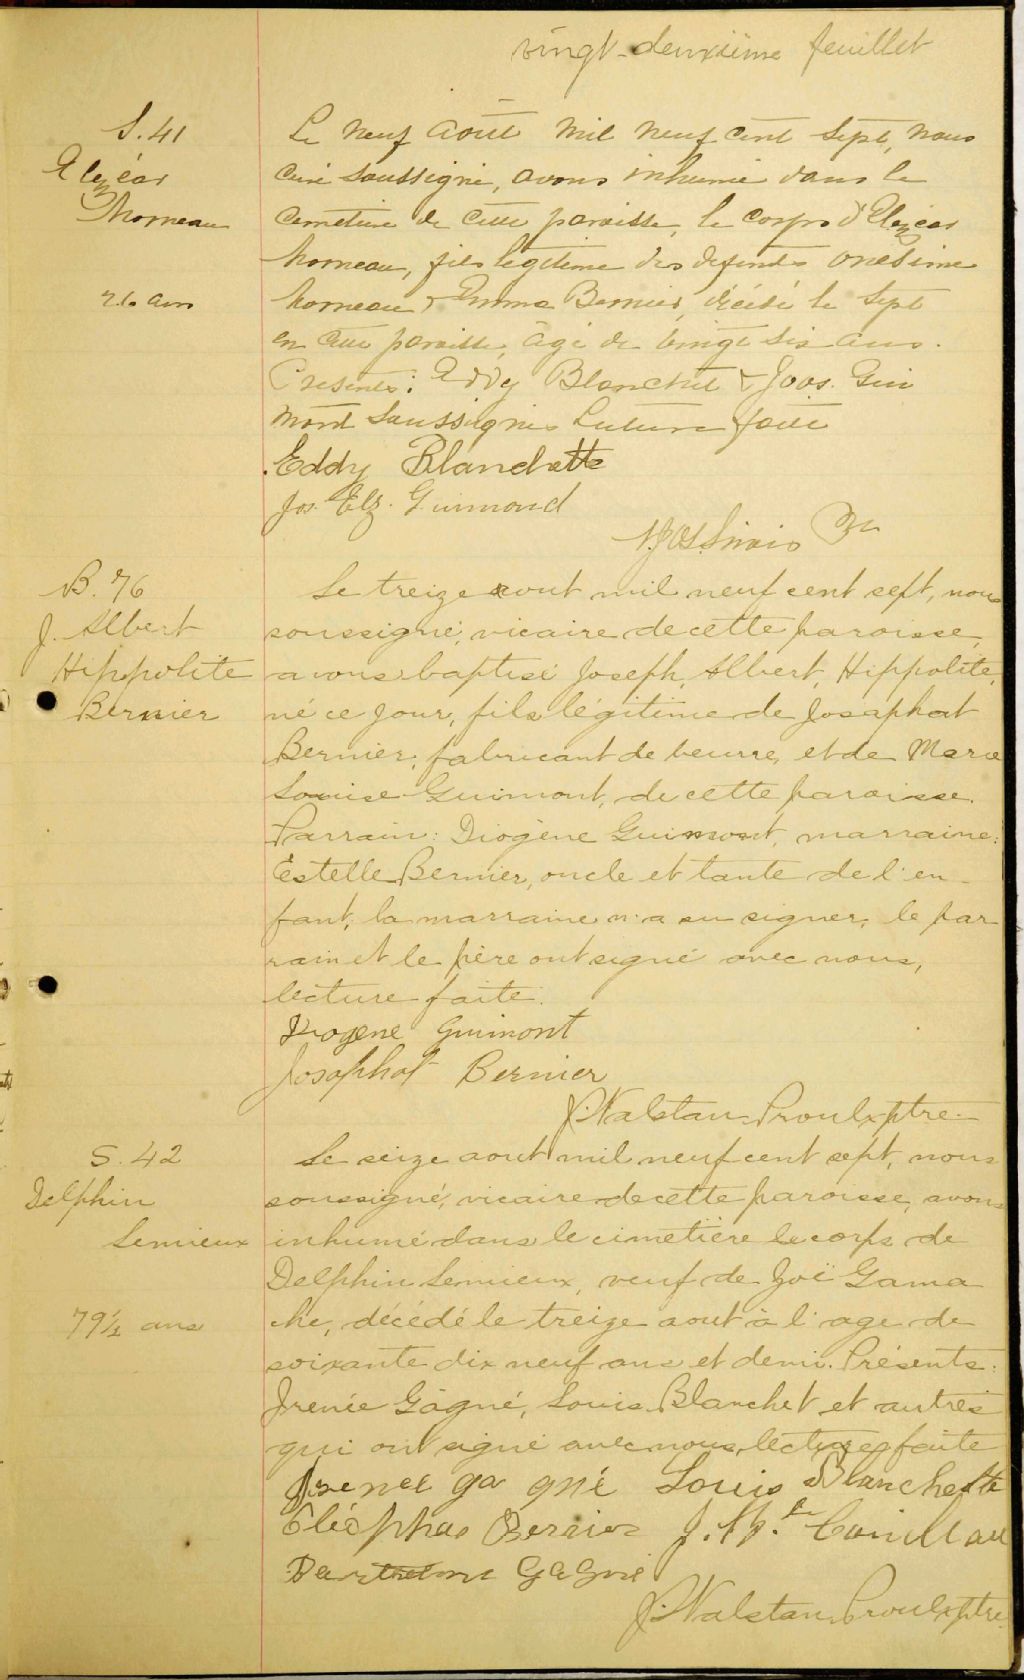 vingt-deuxième feuillet
S. 41
Elzéar
Morneau
26 ans
Le neuf Août mil neuf cent sept, nous
curé soussigné, avons inhumé dans le
cimetière de cette paroisse, le corps d'Elzéar
Morneau, fils légitime des défunts Onésime
Morneau & Emma Bernier, décédé le sept
en cette paroisse, âgé de vingt six ans.
Présents: Eddy Blanchet & Jos. Gui
mont soussignés Lecture faite
Eddy Blanchette
Jos. Elz. Guimond
Ptre
B. 76
J. Albert
Hippolite
Bernier
Le treize aout mil neuf cent sept, nous
soussigné, vicaire de cette paroisse,
avons baptisé Joseph, Albert, Hippolite,
né ce jour, fils légitime de Josaphat
Bernier, fabricant de beurre, et de Marie
Louise Guimont, de cette paroisse.
Parrain: Diogène Guimont, marraine:
Estelle Bernier, oncle et tante de l'en-
fant, la marraine n'a su signer, le par
rain et le père ont signé avec nous,
lecture faite.
Diogene Guimont
Josaphat Bernier
J. Walstan Proulx ptre.
S. 42
Delphin
Lemieux
79½ ans
Le seize aout mil neuf cent sept, nous
soussigné, vicaire de cette paroisse, avons
inhumé dans le cimetière le corps de
Delphin Lemieux, veuf de Zoë Gama
che, décédé le treize aout à l'age de
soixante dix neuf ans et demi. Présents:
Irenée Gagné, Louis Blanchet et autres
qui ont signé avec nous, lecture faite
Irenee ga gné Louis Blanchette
Cléophas Bernier J.
Gagné
J. Walstan Proulx ptre.